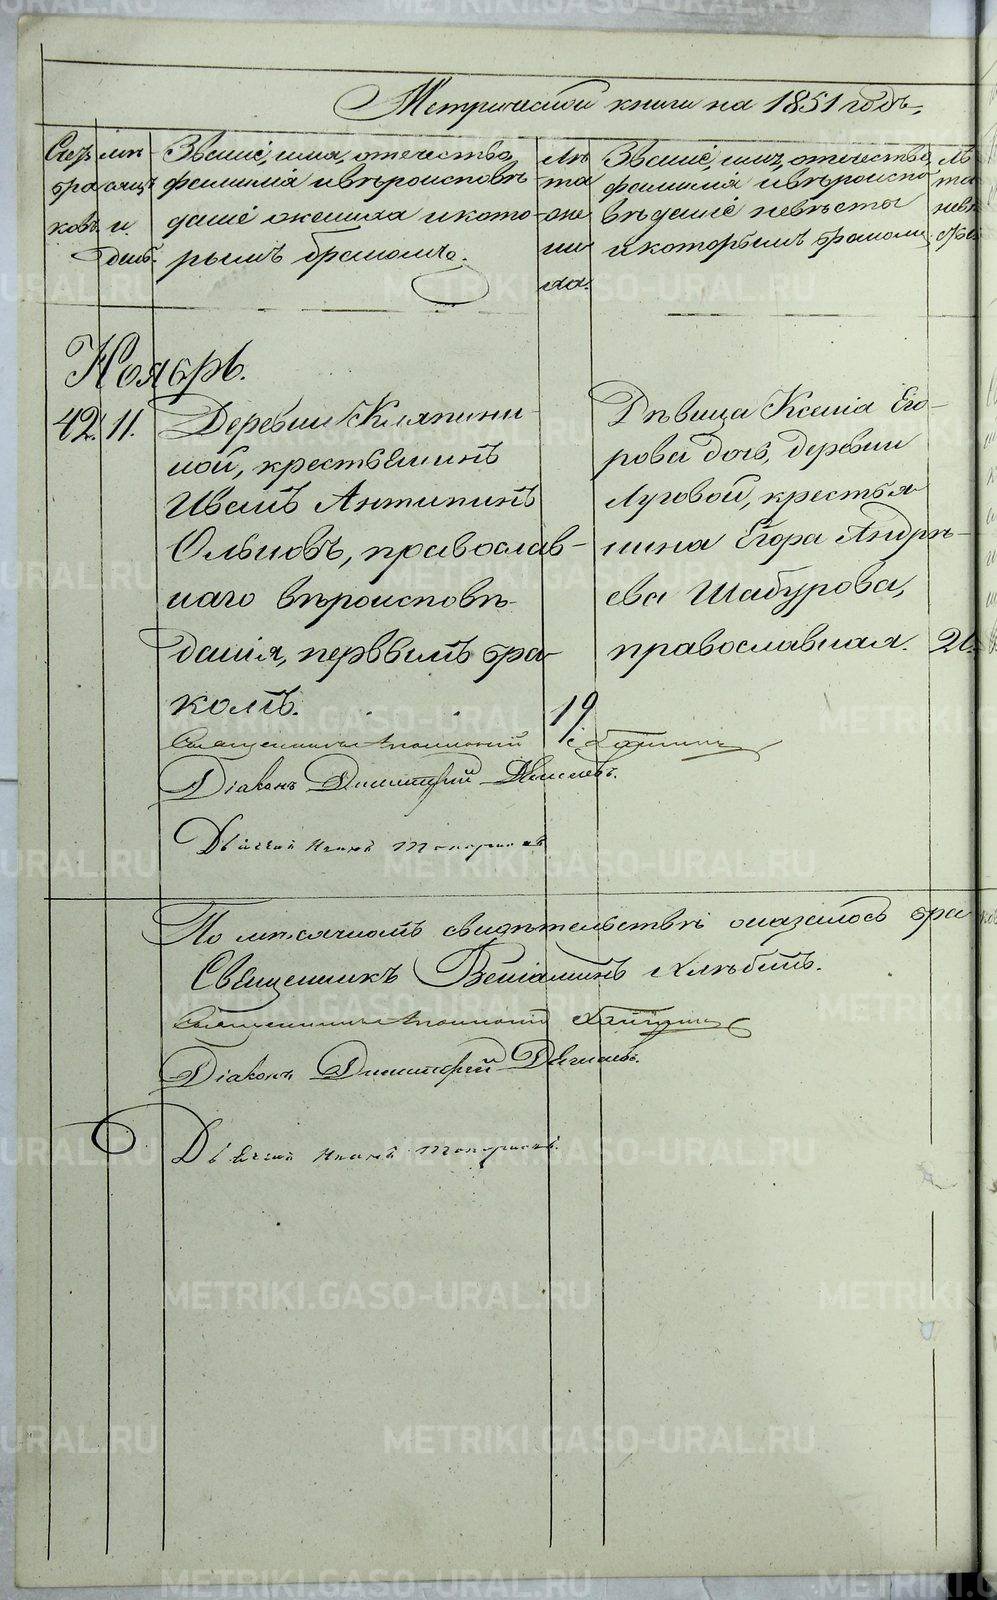 Метрической книги на 1851 годъ,
Счетъ браковъ.
мѣсяцъ и день.
Званіе, имя, отечество,
фамилія и вѣроисповѣ-
даніе жениха и кото-
рымъ бракомъ.
Лѣ
та
же
ни
ха.
Званіе, имя, отечество,
фамилія и вѣроиспо-
вѣданіе невѣсты
и которымъ бракомъ.
Лѣ
та
невѣ
сты
Ноябрь.
42. 11.
Деревни Кляпини-
ной, крестьянинъ
Иванъ Антипинъ
Ольновъ, православ-
наго вѣроисповѣ-
данія, первымъ бра-
комъ.
19.
Дѣвица Ксенія Его-
рова дочь, деревни
Луговой, крестья-
нина Егора Андрѣ-
ева Шабурова,
православная.
21.
Священникъ Аполлоній
Діаконъ Димитрій
Дьячекъ Иванъ Топорковъ
По мѣсячномъ свидѣтельствѣ оказалось бра
Священникъ Веніаминъ Хлѣбинъ.
Священникъ Аполлоній
Діаконъ Димитрій
Дьячекъ Иванъ Топорковъ.
METRIKI.GASO-URAL.RU